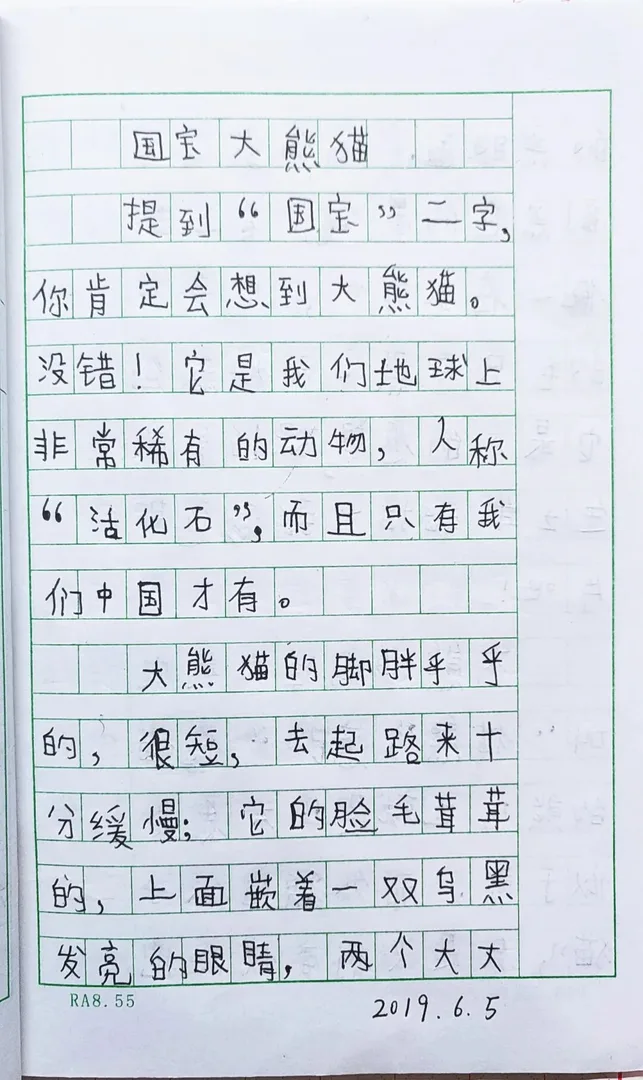 国宝大熊猫
提到“国宝”二字,
你肯定会想到大熊猫。
没错！它是我们地球上
非常稀有的动物,人称
“活化石”,而且只有我
们中国才有。
大熊猫的脚胖乎乎
的,很短,去起路来十
分缓慢;它的脸毛茸茸
的,上面嵌着一双乌黑
发亮的眼睛,两个大大
RA8.55
2019.6.5